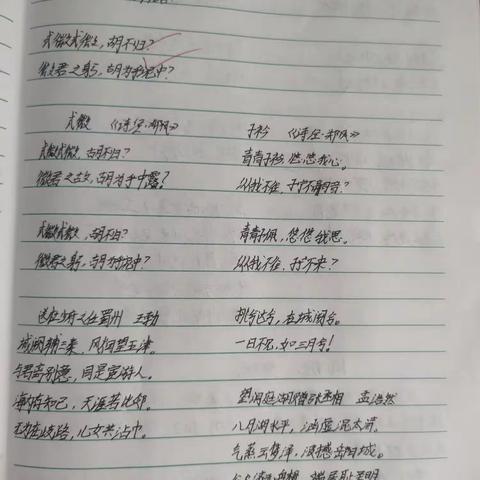 式微式微，胡不归？
微君之躬，胡为乎泥中？
式微 《诗经·邶风》
式微式微，胡不归？
微君之故，胡为乎中露？
式微式微，胡不归？
微君之躬，胡为乎泥中？
送杜少府之任蜀州 王勃
城阙辅三秦，风烟望五津。
与君离别意，同是宦游人。
海内存知己，天涯若比邻。
无为在歧路，儿女共沾巾。
子衿 《诗经·郑风》
青青子衿，悠悠我心。
纵我不往，子宁不嗣音？
青青子佩，悠悠我思。
纵我不往，子宁不来？
挑兮达兮，在城阙兮。
一日不见，如三月兮！
望洞庭湖赠张丞相 孟浩然
八月湖水平，涵虚混太清。
气蒸云梦泽，波撼岳阳城。